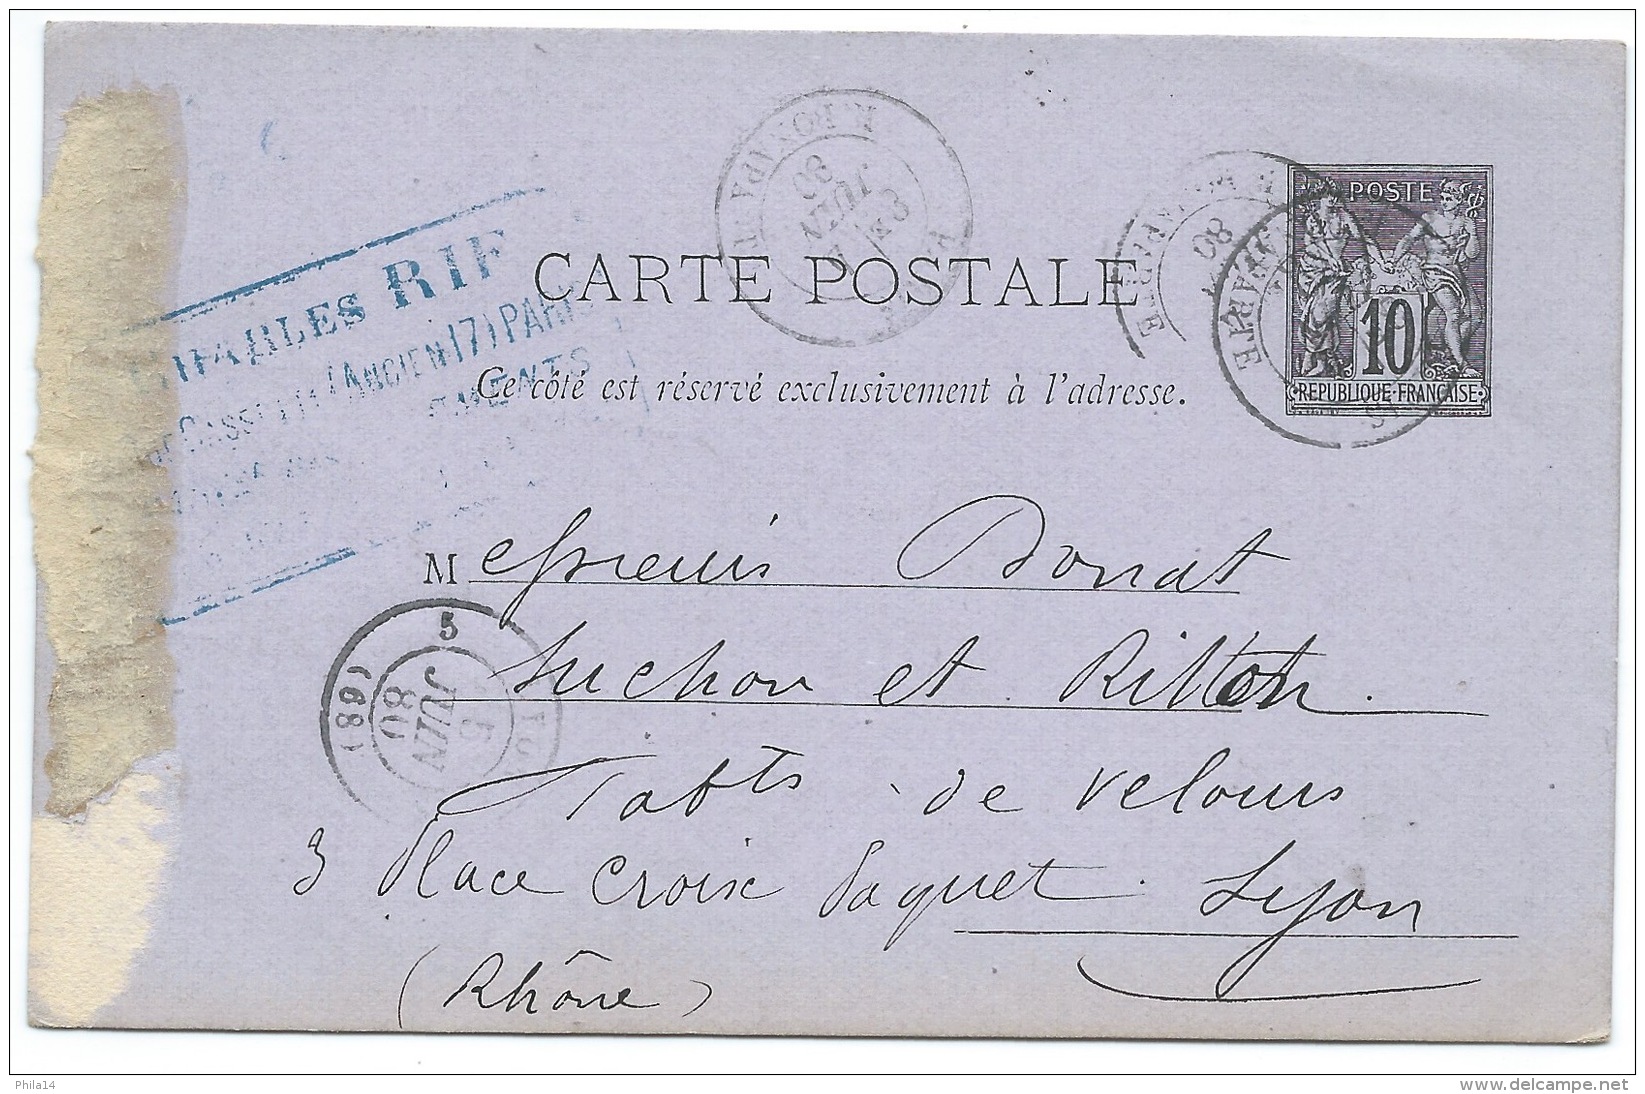 R. BONAPARTE
JUIN
80
POSTE
10
REPUBLIQUE FRANÇAISE
BONAPARTE
80
CARTE POSTALE
Ce côté est réservé exclusivement à l'adresse.
CHARLES RIF
CASSETTE (ANCIEN 17) PARIS
Messieurs Donat
Suchon et Ritton.
fabts de velours
3 Place Croix Paquet Lyon
(Rhône)
5
5
JUIN
80
(68)
Phila14
www.delcampe.net